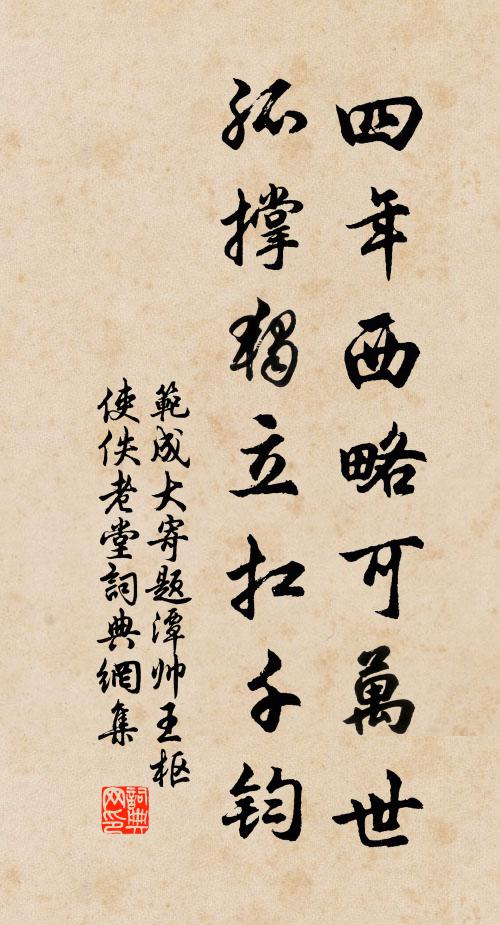 四年西略可萬世
孤撐獨立扛千鈞
範成大寄題潭帅王枢
使佚老堂詞典網集
詞典网印